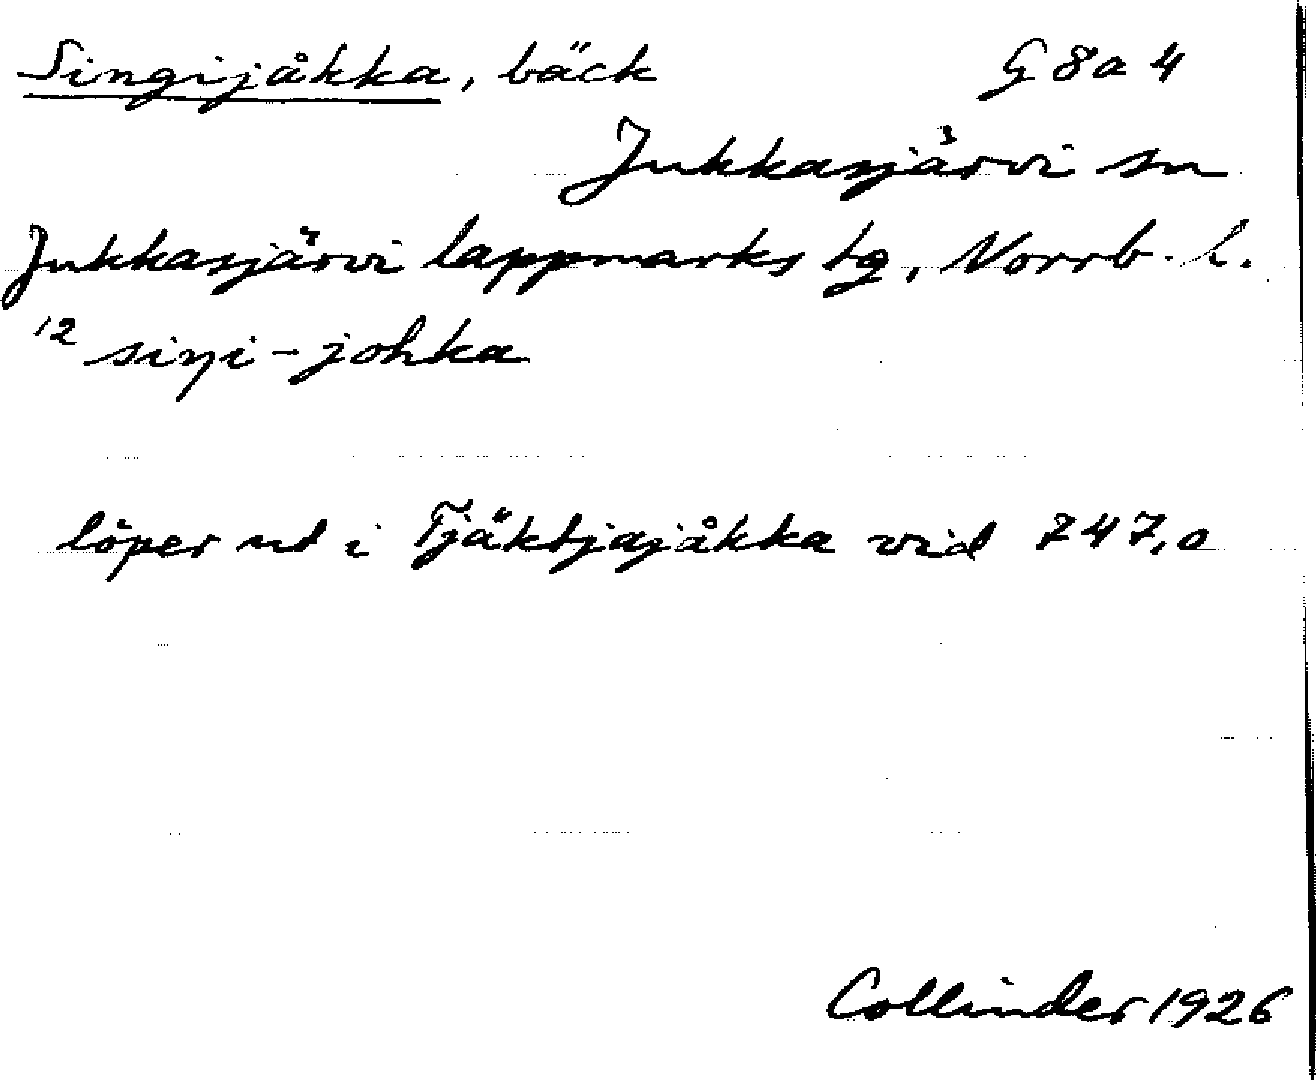 Singijåkka, bäck G 8 a 4
Jukkasjärvi sn
Jukkasjärvi lappmarks tg, Norrb. l.
12 siŋi-johka
löper ut i Tjäktjajåkka vid 747,0
Collinder 1926